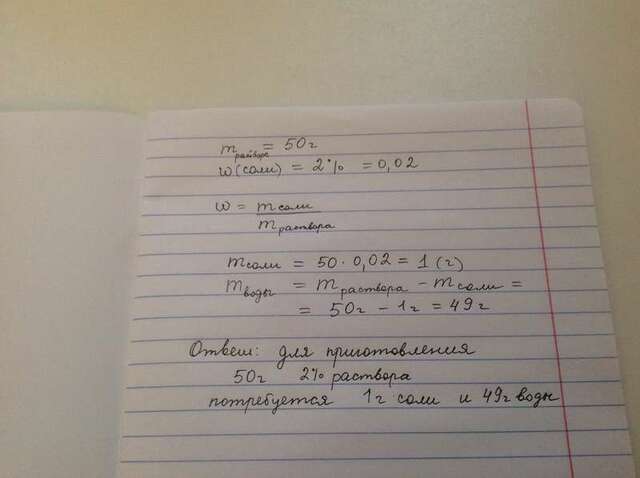 m раствора = 50г
w(соли) = 2% = 0,02
w = m соли
m раствора
m соли = 50 · 0,02 = 1 (г)
m воды = m раствора - m соли =
= 50г - 1г = 49г
Ответ: для приготовления
50г 2% раствора
потребуется 1г соли и 49г воды